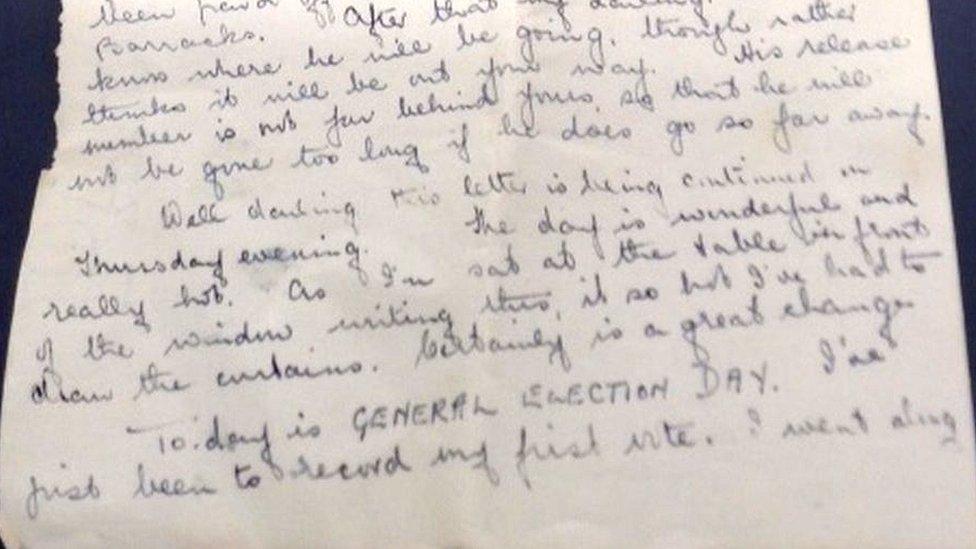 been paid off After that my darling
Barracks.
know where he will be going, though rather
thinks it will be out your way. His release
number is not far behind yours, so that he will
not be gone too long if he does go so far away.
Well darling this letter is being continued on
Thursday evening. The day is wonderful and
really hot. As I'm sat at the table in front
of the window writing this, it so hot I've had to
draw the curtains. Certainly is a great change.
To-day is GENERAL ELECTION DAY. I've
just been to record my first vote. I went along